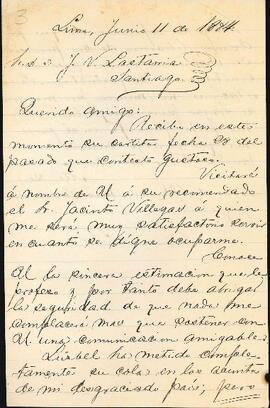 3
Lima, Junio 11 de 1884
S. D. J. V. Lastarria
Santiago.
Querido amigo:
Recibí en este
momento su cartita fecha 28 del
pasado que contesto gustoso.
Visitaré
á nombre de U á su recomendado
el Sr. Jacinto Villegas á quien
me será muy satisfactorio servir
en cuanto se digne ocuparme.
Conoce
U la sincera estimacion que le
profeso y por tanto debe abrigar
la seguridad de que nada me
complacerá mas que sostener con
U una comunicacion amigable.
ha metido comple-
tamente su cola en los asuntos
de mi desgraciado país; pero